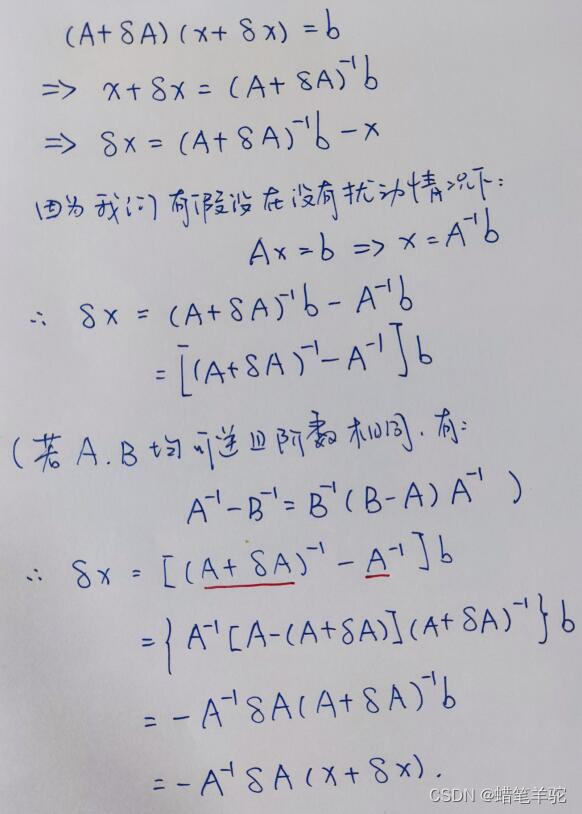 (A+δA)(x+δx)=b
=> x+δx=(A+δA)⁻¹b
=> δx=(A+δA)⁻¹b-x
因为我们有假设在没有扰动情况下:
Ax=b => x=A⁻¹b
∴ δx = (A+δA)⁻¹b - A⁻¹b
= [(A+δA)⁻¹-A⁻¹]b
(若A.B均可逆且阶数相同.有:
A⁻¹-B⁻¹=B⁻¹(B-A)A⁻¹ )
∴ δx = [(A+δA)⁻¹ - A⁻¹]b
={A⁻¹[A-(A+δA)](A+δA)⁻¹}b
= -A⁻¹δA(A+δA)⁻¹b
=-A⁻¹δA(x+δx).
CSDN @蜡笔羊驼